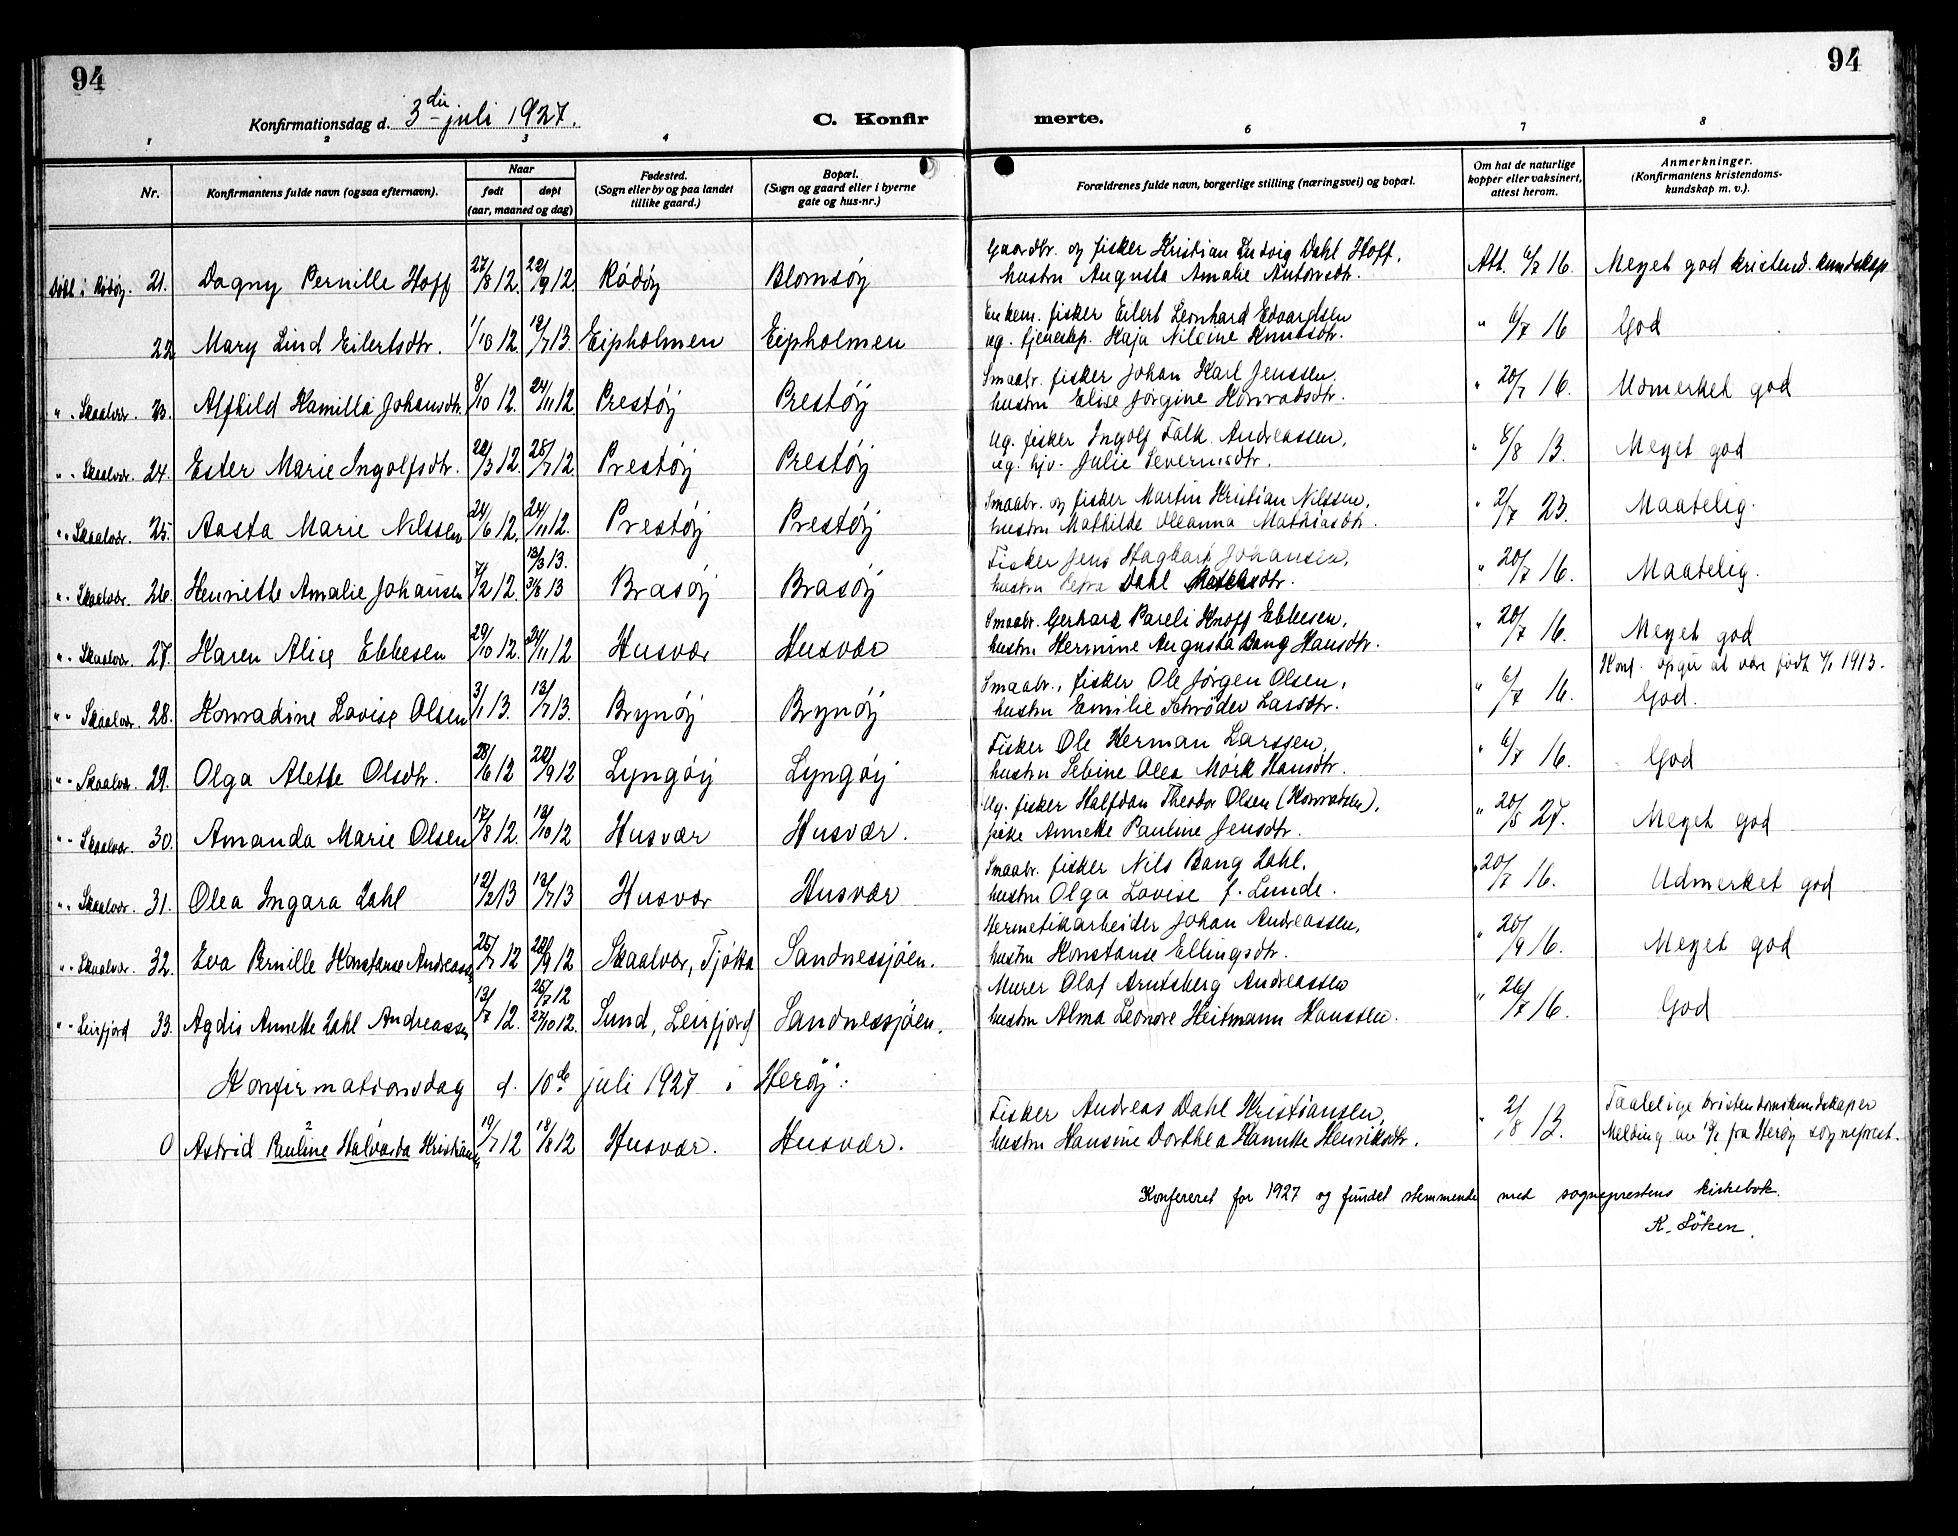 94
94
Konfirmationsdag d. 3die juli 1927.
C. Konfirmerte.
1 2 3 4 6 7 8
Nr.
Konfirmantens fulde navn (ogsaa efternavn).
Naar
født
døpt
(aar, maaned og dag)
Fødested.
(Sogn eller by og paa landet
tillike gaard.)
Bopæl.
(Sogn og gaard eller i byerne
gate og hus-nr.)
Forældrenes fulde navn, borgerlige stilling (næringsvei) og bopæl.
Om hat de naturlige
kopper eller vaksinert,
attest herom.
Anmerkninger.
(Konfirmantens kristendoms-
kundskap m. v.).
Gaardbr. og fisker Kristian Ludvig Dahl Hoff,
21. Dagny Pernille Hoff 27/8 12. 22/9 12 Rødøy Blomsøy hustru Augusta Amalie Antonsdtr. Att. 6/7 16. Meget god kristend. kundskap
Enkem. fisker Eilert Leonhard Edvardsen
22 Mary Lind Eilertsdtr. 1/10 12. 12/7 13. Eipholmen Eipholmen ug. tjenestep. Kaja Nilsine Knutsdtr. " 6/7 16 God
Smaabr. fisker Johan Karl Jenssen,
" - Skaalvær. 23. Alfhild Kamilla Johansdtr. 8/10 12. 24/11 12 Prestøy Prestøy hustru Elise Jørgine Konradsdtr. " 20/7 16. Udmerket god
Ug. fisker Ingolf Falk Andreassen,
" - Skaalvær. 24. Ester Marie Ingolfsdtr. 22/3 12. 28/7 12. Prestøy Prestøy ug. hjv. Julie Severinsdtr. " 8/8 13. Meget god
Smaabr. og fisker Martin Kristian Nilssen,
" - Skaalvær. 25. Aasta Marie Nilssen 24/6 12. 24/11 12. Prestøy Prestøy hustru Mathilde Oleanna Mathiasdtr. " 2/7 23. Maatelig.
13/3 13. Fisker Jens Hagbart Johansen,
" - Skaalvær. 26. Henriette Amalie Johansen 7/2 12. 31/8 13 Brasøy Brasøy hustru Petra Dahl " 20/7 16. Maatelig.
Smaabr. Gerhard Pareli Knoff Ebbesen,
" - Skaalvær. 27. Karen Alice Ebbesen 29/10 12. 24/11 12 Husvær Husvær hustru Hermine Augusta Bang Hansdtr. " 20/7 16. Meget god
Smaabr., fisker Ole Jørgen Olsen, Konf. opgir at vær født 4/1 1913.
" - Skaalvær. 28. Konradine Lovise Olsen 3/1 13. 13/7 13. Brynøy Brynøy hustru Emilie Schrøder Larsdtr. " 6/7 16. God.
Fisker Ole Herman Larssen,
" - Skaalvær. 29. Olga Alette Olsdtr. 28/6 12 22/9 12 Lyngøy Lyngøy hustru Sebine Olea Mørk Hansdtr. " 6/7 16. God
Ug. fisker Halfdan Theodor Olsen (Konradsen),
" - Skaalvær. 30. Amanda Marie Olsen 17/8 12. 13/10 12 Husvær Husvær. pike Annette Pauline Jensdtr. " 20/5 27. Meget god
Smaabr. fisker Nils Bang Dahl,
" - Skaalvær. 31. Olea Ingara Dahl 12/2 13 13/7 13 Husvær Husvær hustru Olga Lovise f. Lunde. " 20/7 16. Udmerket god
Hermetikarbeider Johan Andreassen,
" - Skaalvær. 32. Eva Pernille Konstanse Andreassen 25/7 12 22/9 12 Skaalvær, Tjøtta Sandnessjøen. hustru Konstanse Ellingsdtr. " 20/9 16. Meget god
Murer Olaf Arntsberg Andreassen
" - Leirfjord 33. Agdis Annette Dahl Andreassen 13/7 12. 27/10 12. Sund, Leirfjord Sandnessjøen. hustru Alma Leonore Heitmann Hanssen. " 26/7 16. God
Konfirmationsdag d. 10de juli 1927 i Herøy.
Fisker Andreas Dahl Kristiansen, Taalelige kristendomskundskaper
0 Astrid Pauline Halvarda Kristiansen 19/7 12 18/8 12 Husvær. Husvær. hustru Hansine Dorthea Hannette Henriksdtr. " 2/8 13. Melding av fra Herøy sogneprest.
Konfereret for 1927 og fundet stemmende med sogneprestens kirkebok.
K. Løken.